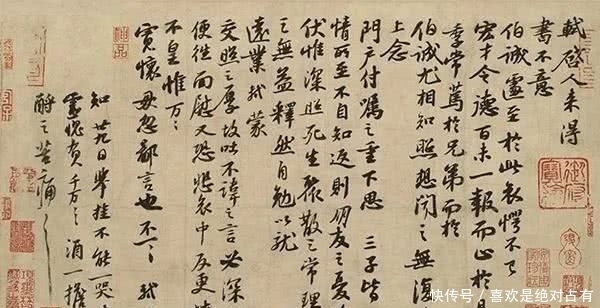 軾啓人來得
書不意
伯誠遽至於此哀愕不
宏才令德百未一報而止於
季常篤於兄弟而於
伯誠尤相知照想聞之無復
上念
門戶付囑之重下思三子皆
情所至不自知返則朋友之憂
伏惟深照死生聚散之常理
之無益釋然自勉以就
遠業軾蒙
交照之厚故吐不諱之言必深
便往面慰又恐悲哀中反更
不皇惟万万
寬懷毋忽鄙言也不一一軾
知廿九日舉掛不能一哭
靈愧負千万千万酒一擔
酹之苦痛
快传号/喜欢是绝对占有